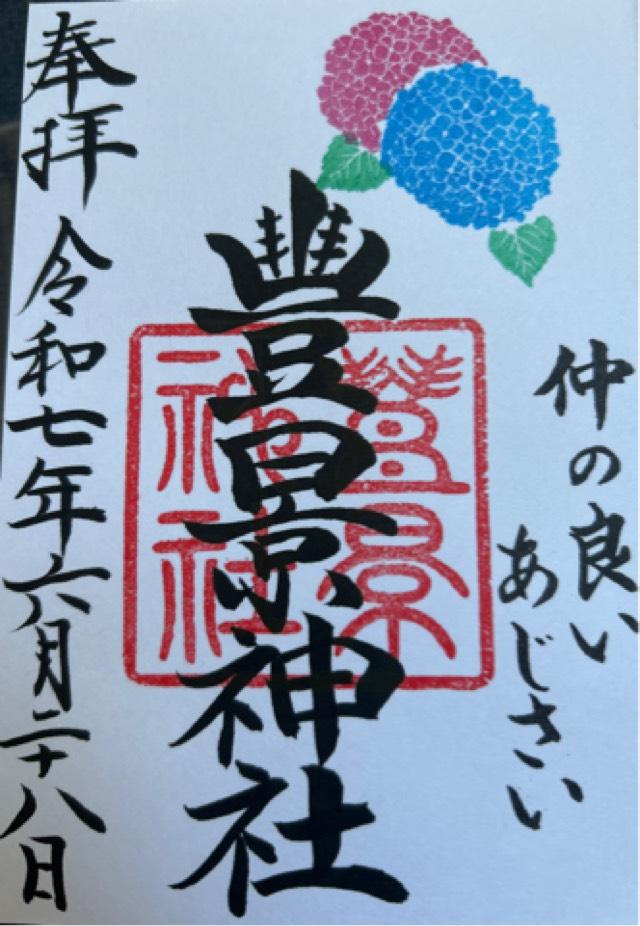 仲の良い
あじさい
豊景神社
豊景神社
奉拝 令和七年六月二十八日